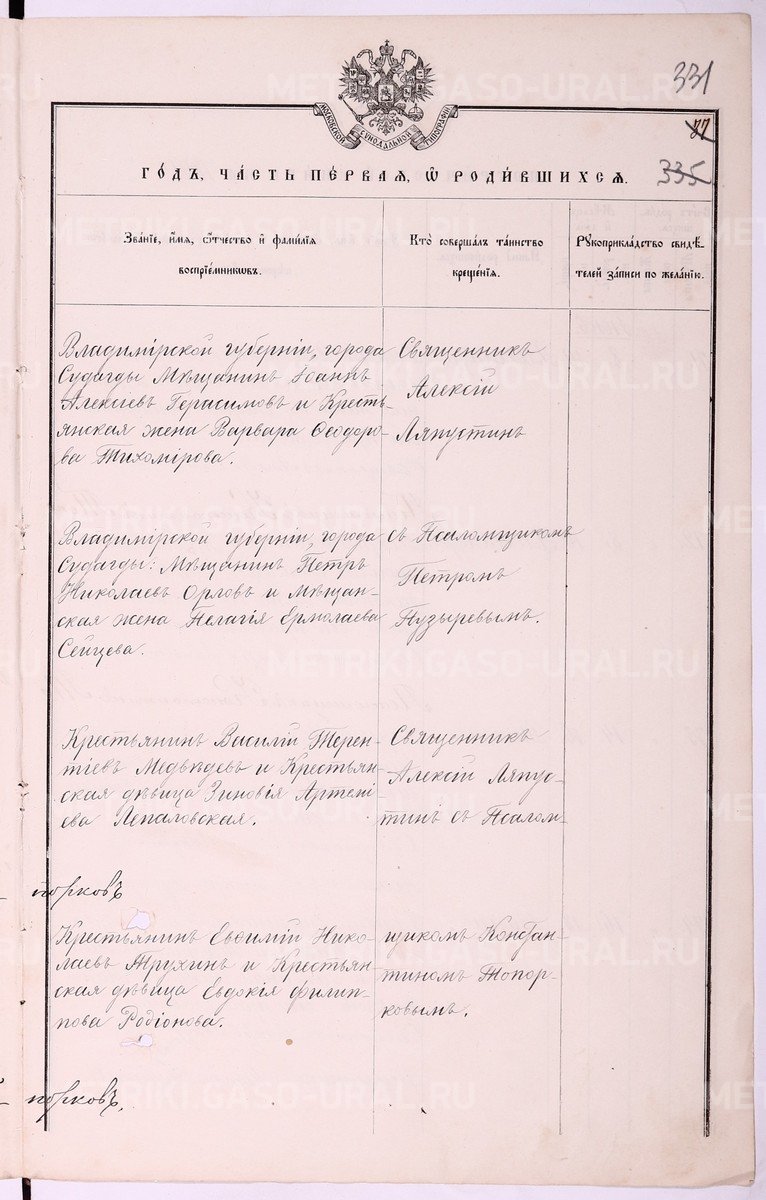 331
77
335
МОСКОВСКОЙ СѴНОДАЛЬНОЙ ТИПОГРАФІИ
ГО́ДЪ, ЧА́СТЬ ПЕ́РВАЯ, Ѽ РОДИ́ВШИХСЯ.
Зва́ніе, и҆́мя, ѻ҆́тчество и҆ фами́лія
воспріе́мниковъ.
Кто̀ соверша́лъ та́инство
креще́нія.
Рꙋкоприкла́дство свидѣ́-
телей за́писи по жела́нію.
Владимірской губерніи, города
Судагды Мѣщанинъ Іоаннъ
Алексіевъ Герасимовъ и Кресть-
янская жена Варвара Ѳеодоро-
ва Тихомірова.
Священникъ
Алексій
Ляпустинъ
Владимірской губерніи, города
Судагды: Мѣщанинъ Петръ
Николаевъ Орловъ и мѣщан-
ская жена Пелагія Ермолаева
Сейцева.
съ Псаломщикомъ
Петромъ
Пузыревымъ.
Крестьянинъ Василій Терен-
тіевъ Медвѣдевъ и Крестьян-
ская дѣвица Зиновія Артемі-
ева Лепаловская.
Священникъ
Алексій Ляпус-
тинъ съ Псалом-
порковъ
Крестьянинъ Евѳимій Нико-
лаевъ Трухинъ и Крестьян-
ская дѣвица Евдокія Филип-
пова Родіонова.
щикомъ Констан-
тиномъ Топор-
ковымъ.
порковъ.
METRIKI.GASO-URAL.RU